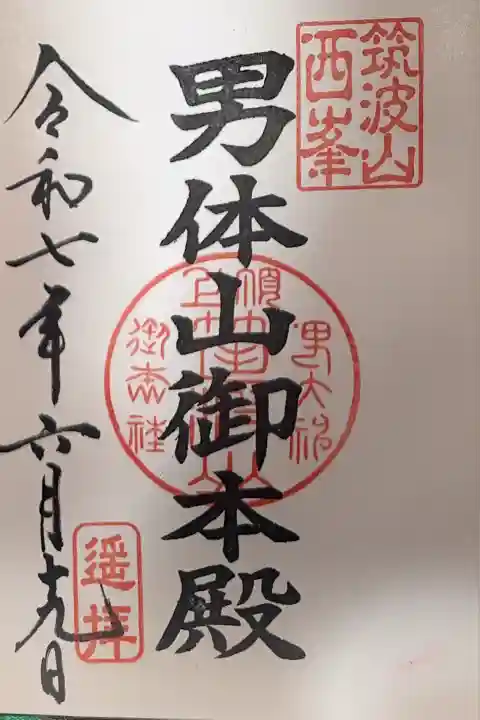 筑波山
西峯
男体山御本殿
令和七年六月十九日
遥拝